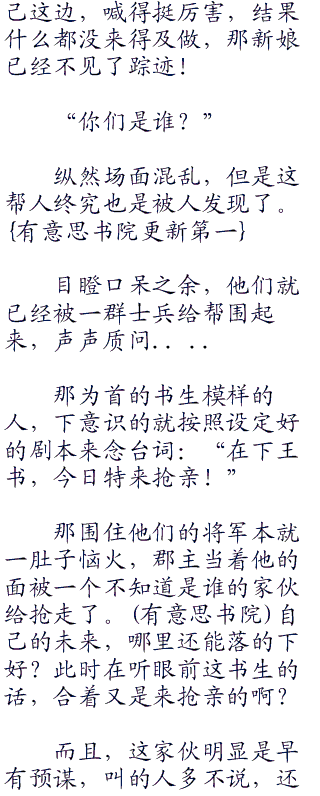 己这边，喊得挺厉害，结果
什么都没来得及做，那新娘
已经不见了踪迹！
“你们是谁？”
纵然场面混乱，但是这
帮人终究也是被人发现了。
{有意思书院更新第一}
目瞪口呆之余，他们就
已经被一群士兵给帮围起
来，声声质问．．．．
那为首的书生模样的
人，下意识的就按照设定好
的剧本来念台词：“在下王
书，今日特来抢亲！”
那围住他们的将军本就
一肚子恼火，郡主当着他的
面被一个不知道是谁的家伙
给抢走了。(有意思书院)自
己的未来，哪里还能落的下
好？此时在听眼前这书生的
话，合着又是来抢亲的啊？
而且，这家伙明显是早
有预谋，叫的人多不说，还